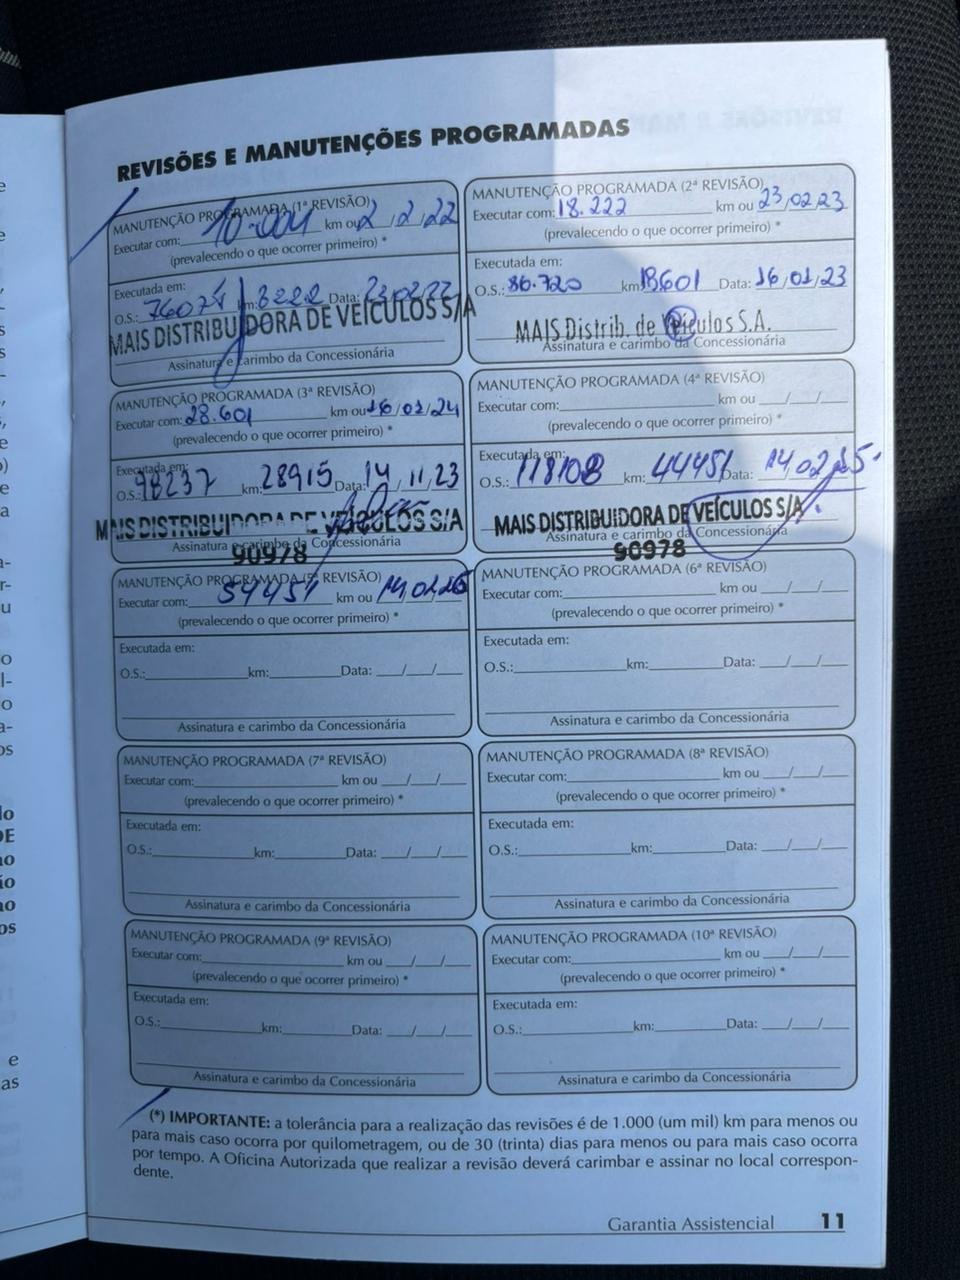 REVISÕES E MANUTENÇÕES PROGRAMADAS
MANUTENÇÃO PROGRAMADA (1ª REVISÃO)
Executar com: 10.001 km ou 2/2/22
(prevalecendo o que ocorrer primeiro) *
Executada em:
O.S.: 76074 km: 8222 Data: 23/02/22
MAIS DISTRIBUIDORA DE VEÍCULOS S/A
Assinatura e carimbo da Concessionária
MANUTENÇÃO PROGRAMADA (2ª REVISÃO)
Executar com: 18.222 km ou 23/02/23
(prevalecendo o que ocorrer primeiro) *
Executada em:
O.S.: 86.720 km: 18601 Data: 16/01/23
MAIS Distrib. de Veículos S.A.
Assinatura e carimbo da Concessionária
MANUTENÇÃO PROGRAMADA (3ª REVISÃO)
Executar com: 28.601 km ou 16/01/24
(prevalecendo o que ocorrer primeiro) *
Executada em:
O.S.: 98237 km: 28915 Data: 14/11/23
MAIS DISTRIBUIDORA DE VEÍCULOS S/A
Assinatura e carimbo da Concessionária
90978
MANUTENÇÃO PROGRAMADA (4ª REVISÃO)
Executar com: km ou / /
(prevalecendo o que ocorrer primeiro) *
Executada em:
O.S.: 118108 km: 44451 Data: 14.02.25.
MAIS DISTRIBUIDORA DE VEÍCULOS S/A
Assinatura e carimbo da Concessionária
90978
MANUTENÇÃO PROGRAMADA (5ª REVISÃO)
Executar com: 54451 km ou 14/02/26
(prevalecendo o que ocorrer primeiro) *
Executada em:
O.S.: km: Data: / /
Assinatura e carimbo da Concessionária
MANUTENÇÃO PROGRAMADA (6ª REVISÃO)
Executar com: km ou / /
(prevalecendo o que ocorrer primeiro) *
Executada em:
O.S.: km: Data: / /
Assinatura e carimbo da Concessionária
MANUTENÇÃO PROGRAMADA (7ª REVISÃO)
Executar com: km ou / /
(prevalecendo o que ocorrer primeiro) *
Executada em:
O.S.: km: Data: / /
Assinatura e carimbo da Concessionária
MANUTENÇÃO PROGRAMADA (8ª REVISÃO)
Executar com: km ou / /
(prevalecendo o que ocorrer primeiro) *
Executada em:
O.S.: km: Data: / /
Assinatura e carimbo da Concessionária
MANUTENÇÃO PROGRAMADA (9ª REVISÃO)
Executar com: km ou / /
(prevalecendo o que ocorrer primeiro) *
Executada em:
O.S.: km: Data: / /
Assinatura e carimbo da Concessionária
MANUTENÇÃO PROGRAMADA (10ª REVISÃO)
Executar com: km ou / /
(prevalecendo o que ocorrer primeiro) *
Executada em:
O.S.: km: Data: / /
Assinatura e carimbo da Concessionária
(*) IMPORTANTE: a tolerância para a realização das revisões é de 1.000 (um mil) km para menos ou
para mais caso ocorra por quilometragem, ou de 30 (trinta) dias para menos ou para mais caso ocorra
por tempo. A Oficina Autorizada que realizar a revisão deverá carimbar e assinar no local correspon-
dente.
Garantia Assistencial 11